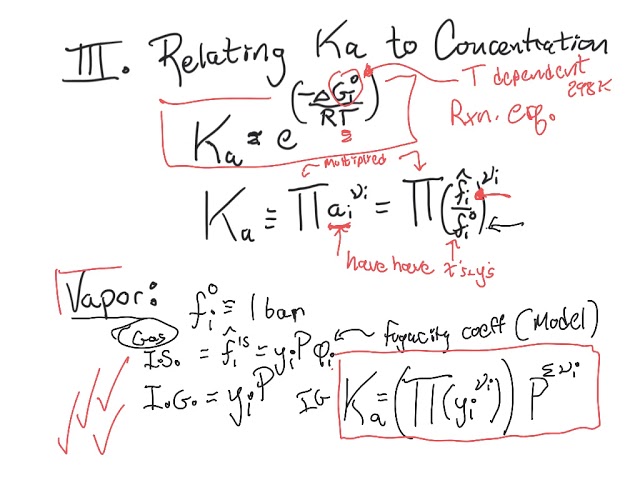 III. Relating Ka to Concentration
Ka = e^(-ΔG°T/RT)
T dependent
298K
Rxn. eq.
multiplied
Ka ≡ ∏ ai^νi = ∏ (f̂i/fi°)^νi
have have x's, y's
Vapor: fi° ≡ 1 bar
Gas
I.S. = f̂i^is = yi P φi ← fugacity coeff (Model)
I.G. = yi P
IG Ka = (∏(yi^νi)) P^Σνi